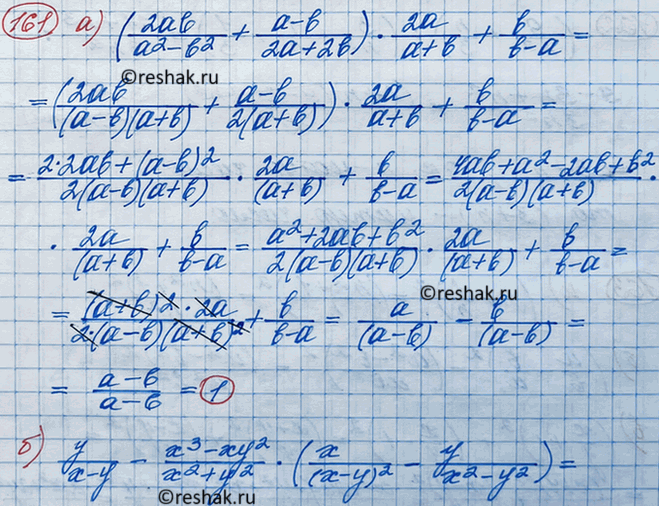 161 а) (2ab/(a²-b²) + (a-b)/(2a+2b)) · 2a/(a+b) + b/(b-a) =
©reshak.ru
= (2ab/((a-b)(a+b)) + (a-b)/(2(a+b))) · 2a/(a+b) + b/(b-a) =
= (2·2ab+(a-b)²)/(2(a-b)(a+b)) · 2a/(a+b) + b/(b-a) = (4ab+a²-2ab+b²)/(2(a-b)(a+b)) ·
· 2a/(a+b) + b/(b-a) = (a²+2ab+b²)/(2(a-b)(a+b)) · 2a/(a+b) + b/(b-a) =
©reshak.ru
= ((a+b)²·2a)/(2·(a-b)(a+b)²) + b/(b-a) = a/(a-b) - b/(a-b) =
= (a-b)/(a-b) = 1
б) y/(x-y) - (x³-xy²)/(x²+y²) · (x/(x-y)² - y/(x²-y²)) =
©reshak.ru